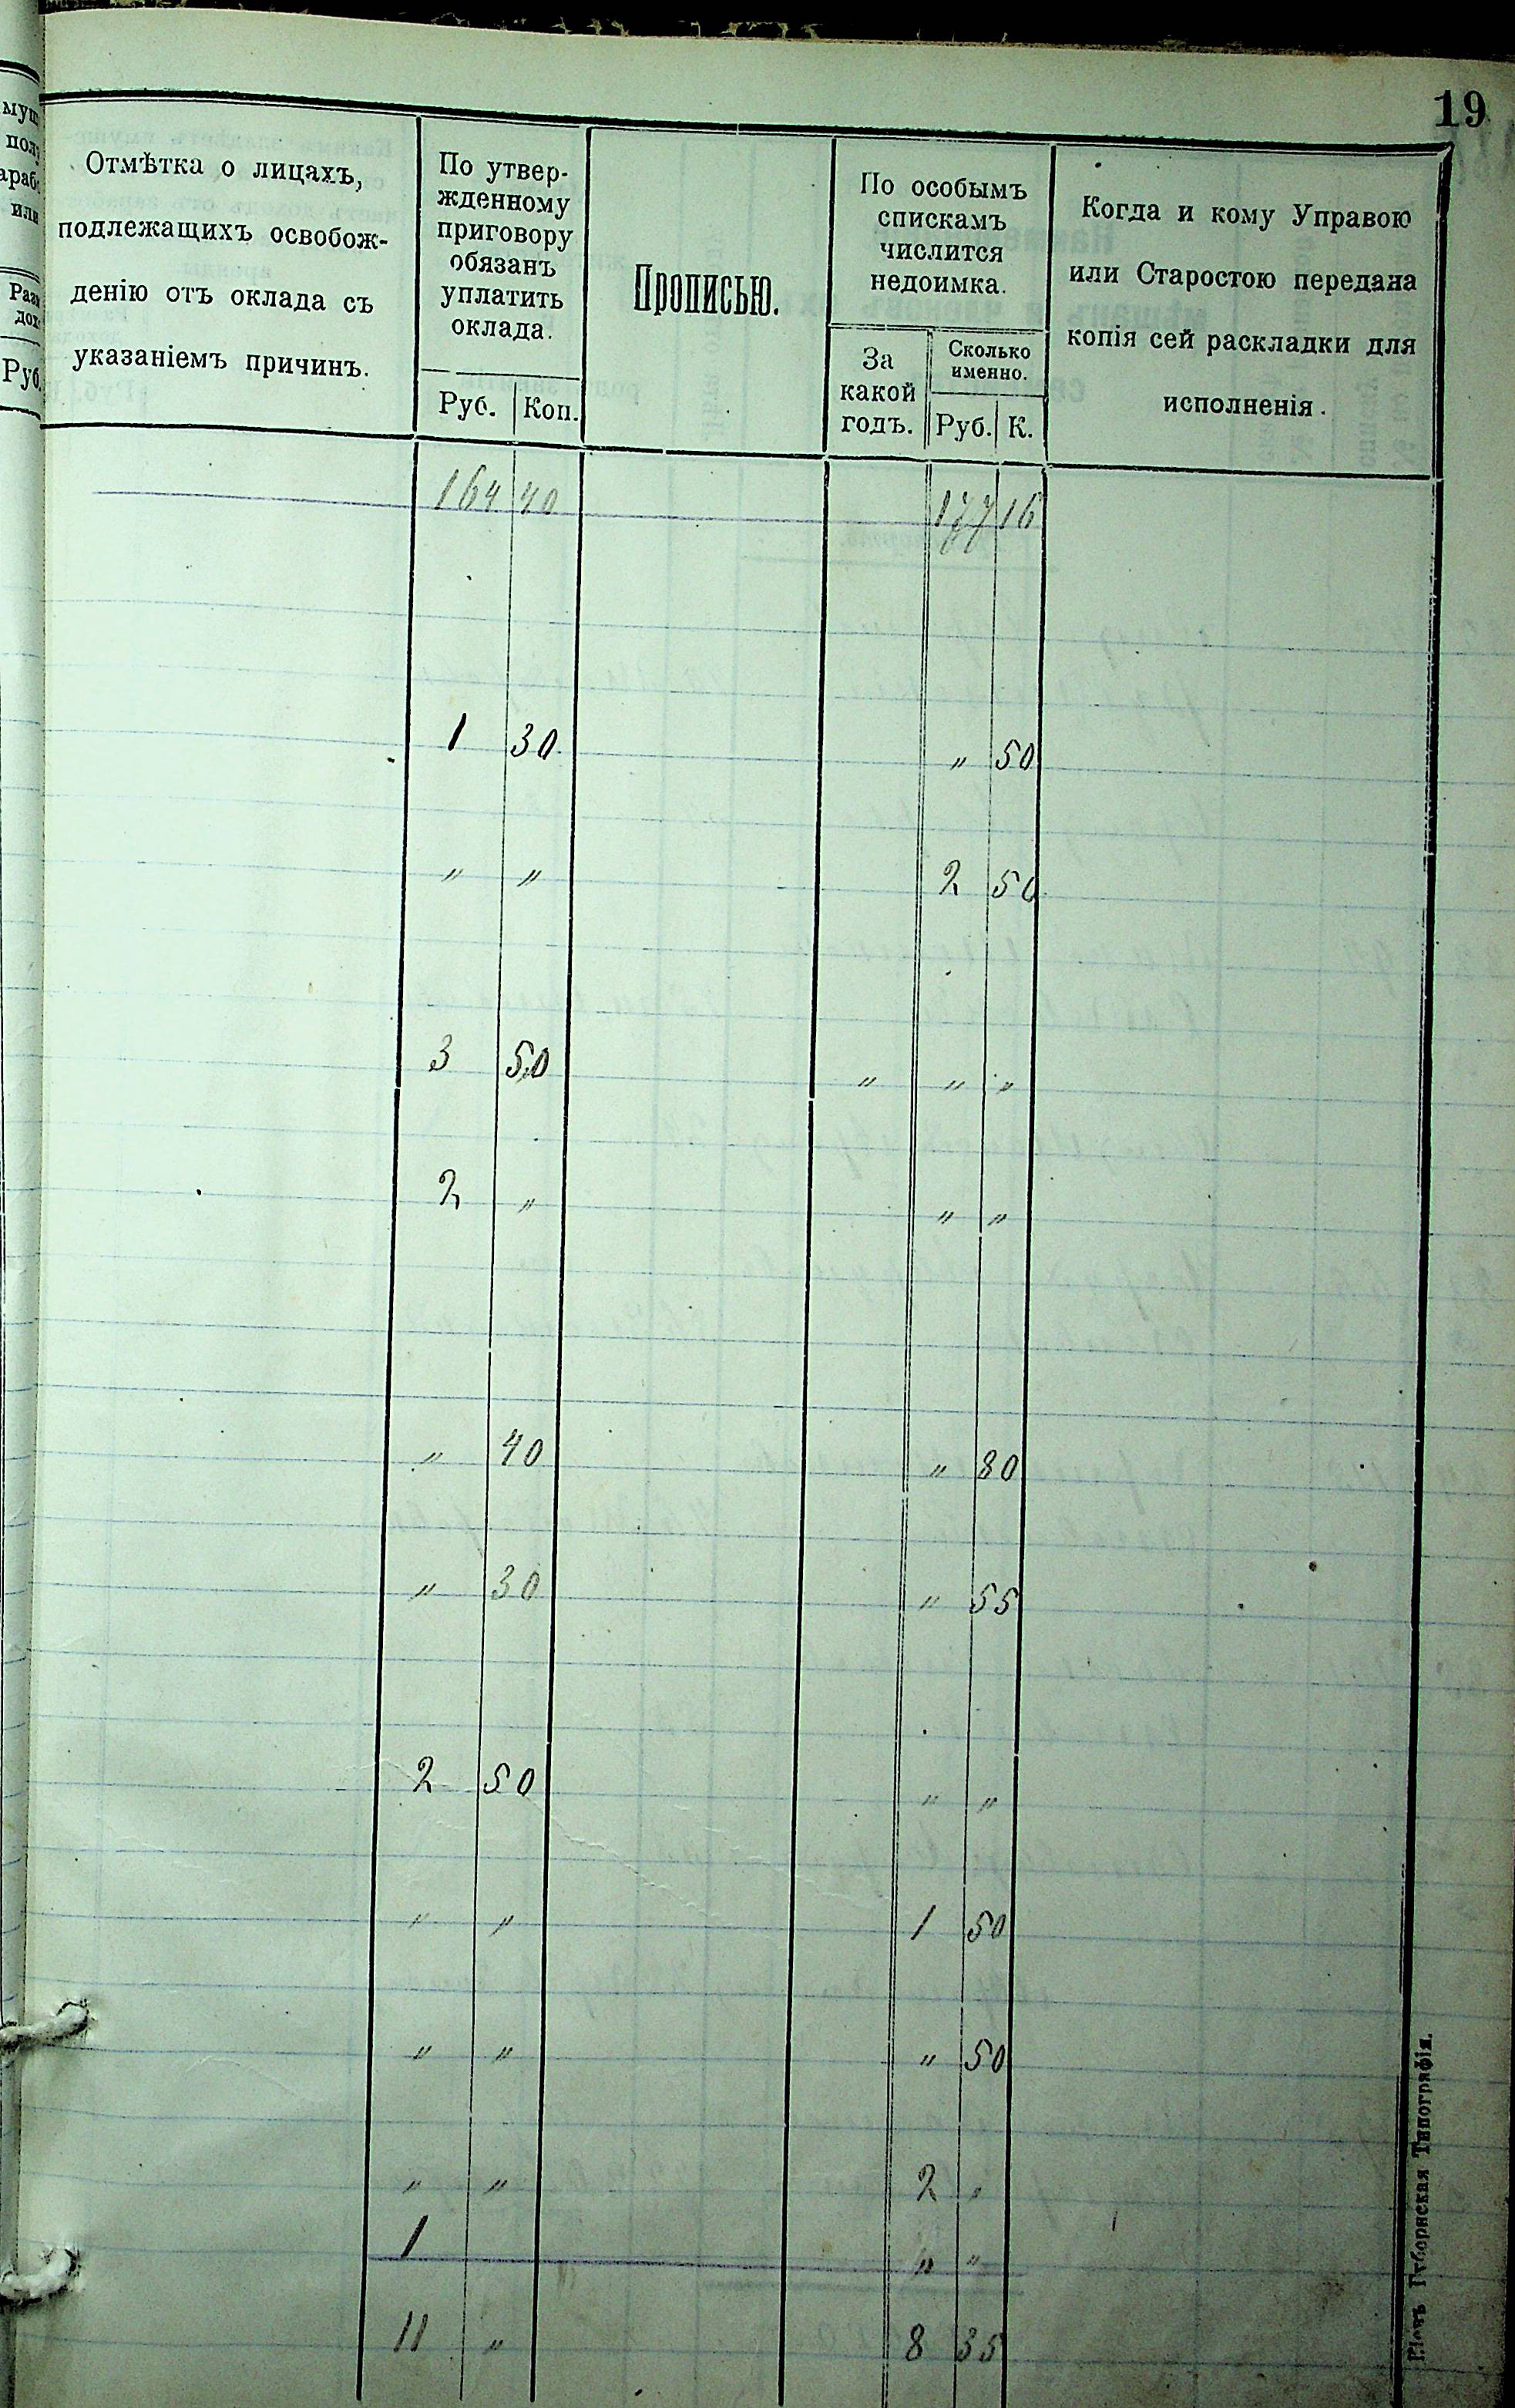 19
Отмѣтка о лицахъ,
подлежащихъ освобож-
денію отъ оклада съ
указаніемъ причинъ.
По утвер-
жденному
приговору
обязанъ
уплатить
оклада.
Руб. Коп.
Прописью.
По особымъ
спискамъ
числится
недоимка.
За
какой
годъ.
Сколько
именно.
Руб. К.
Когда и кому Управою
или Старостою передана
копія сей раскладки для
исполненія.
164 40 177 16
1 30 " 50
" " 2 50
3 50 " " "
2 " " "
" 40 " 80
" 30 " 55
2 50 " "
" " 1 50
" " " 50
" " 2 "
1 " "
11 " 8 35
Губернская Типографія.
Руб.